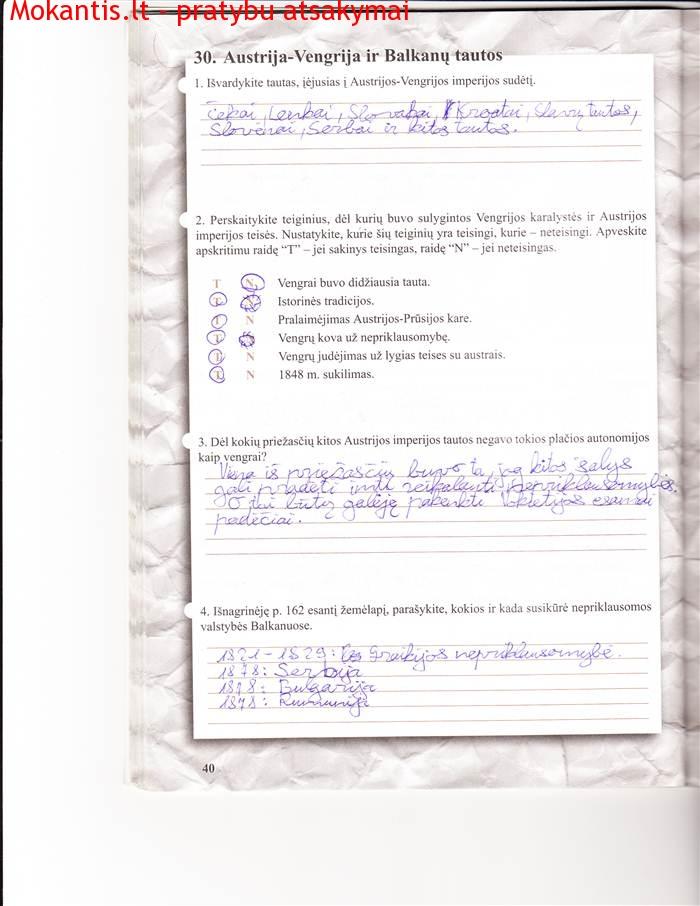 Mokantis.lt - pratybu atsakymai
30. Austrija-Vengrija ir Balkanų tautos
1. Išvardykite tautas, įėjusias į Austrijos-Vengrijos imperijos sudėtį.
Čekai, Lenkai, Slovakai, Kroatai, Slavų tautos,
Slovėnai, Serbai ir kitos tautos.
2. Perskaitykite teiginius, dėl kurių buvo sulygintos Vengrijos karalystės ir Austrijos
imperijos teisės. Nustatykite, kurie šių teiginių yra teisingi, kurie – neteisingi. Apveskite
apskritimu raidę “T” – jei sakinys teisingas, raidę “N” – jei neteisingas.
T N Vengrai buvo didžiausia tauta.
T N Istorinės tradicijos.
T N Pralaimėjimas Austrijos-Prūsijos kare.
T N Vengrų kova už nepriklausomybę.
T N Vengrų judėjimas už lygias teises su austrais.
T N 1848 m. sukilimas.
3. Dėl kokių priežasčių kitos Austrijos imperijos tautos negavo tokios plačios autonomijos
kaip vengrai?
Viena iš priežasčių buvo ta, jog kitos šalys
gali pradėti imti reikalauti nepriklausomybės.
O tai būtų galėję pakenkti Vokietijos esamai
padėčiai.
4. Išnagrinėję p. 162 esantį žemėlapį, parašykite, kokios ir kada susikūrė nepriklausomos
valstybės Balkanuose.
1821-1829: Graikijos nepriklausomybė.
1878: Serbija
1878: Bulgarija
1878: Rumunija
40